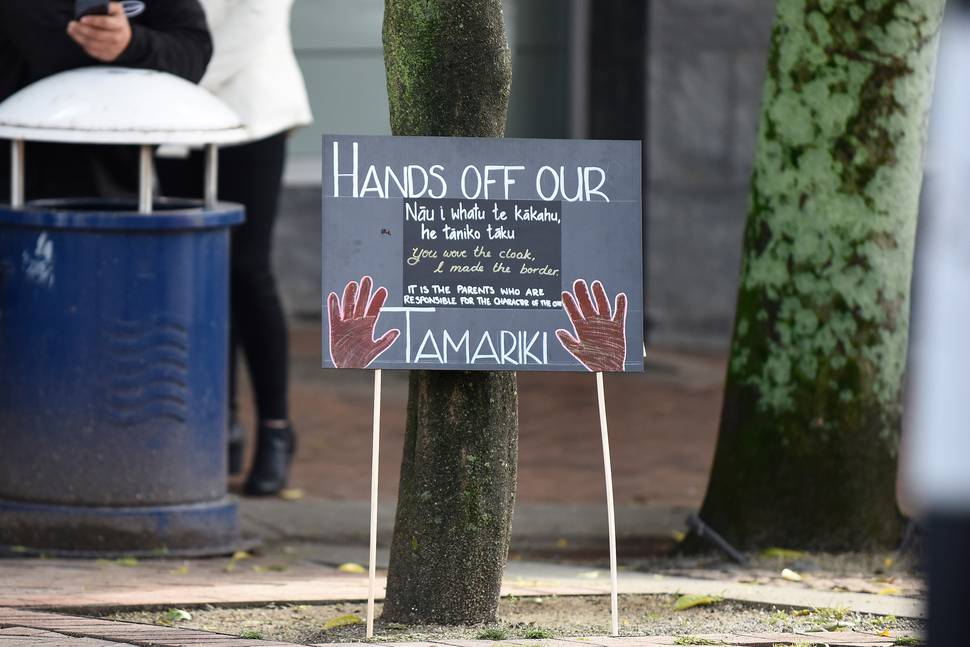 HANDS OFF OUR
Nāu i whatu te kākahu,
he tāniko tāku
You wove the cloak,
I made the border.
IT IS THE PARENTS WHO ARE
RESPONSIBLE FOR THE CHARACTER OF THE
TAMARIKI